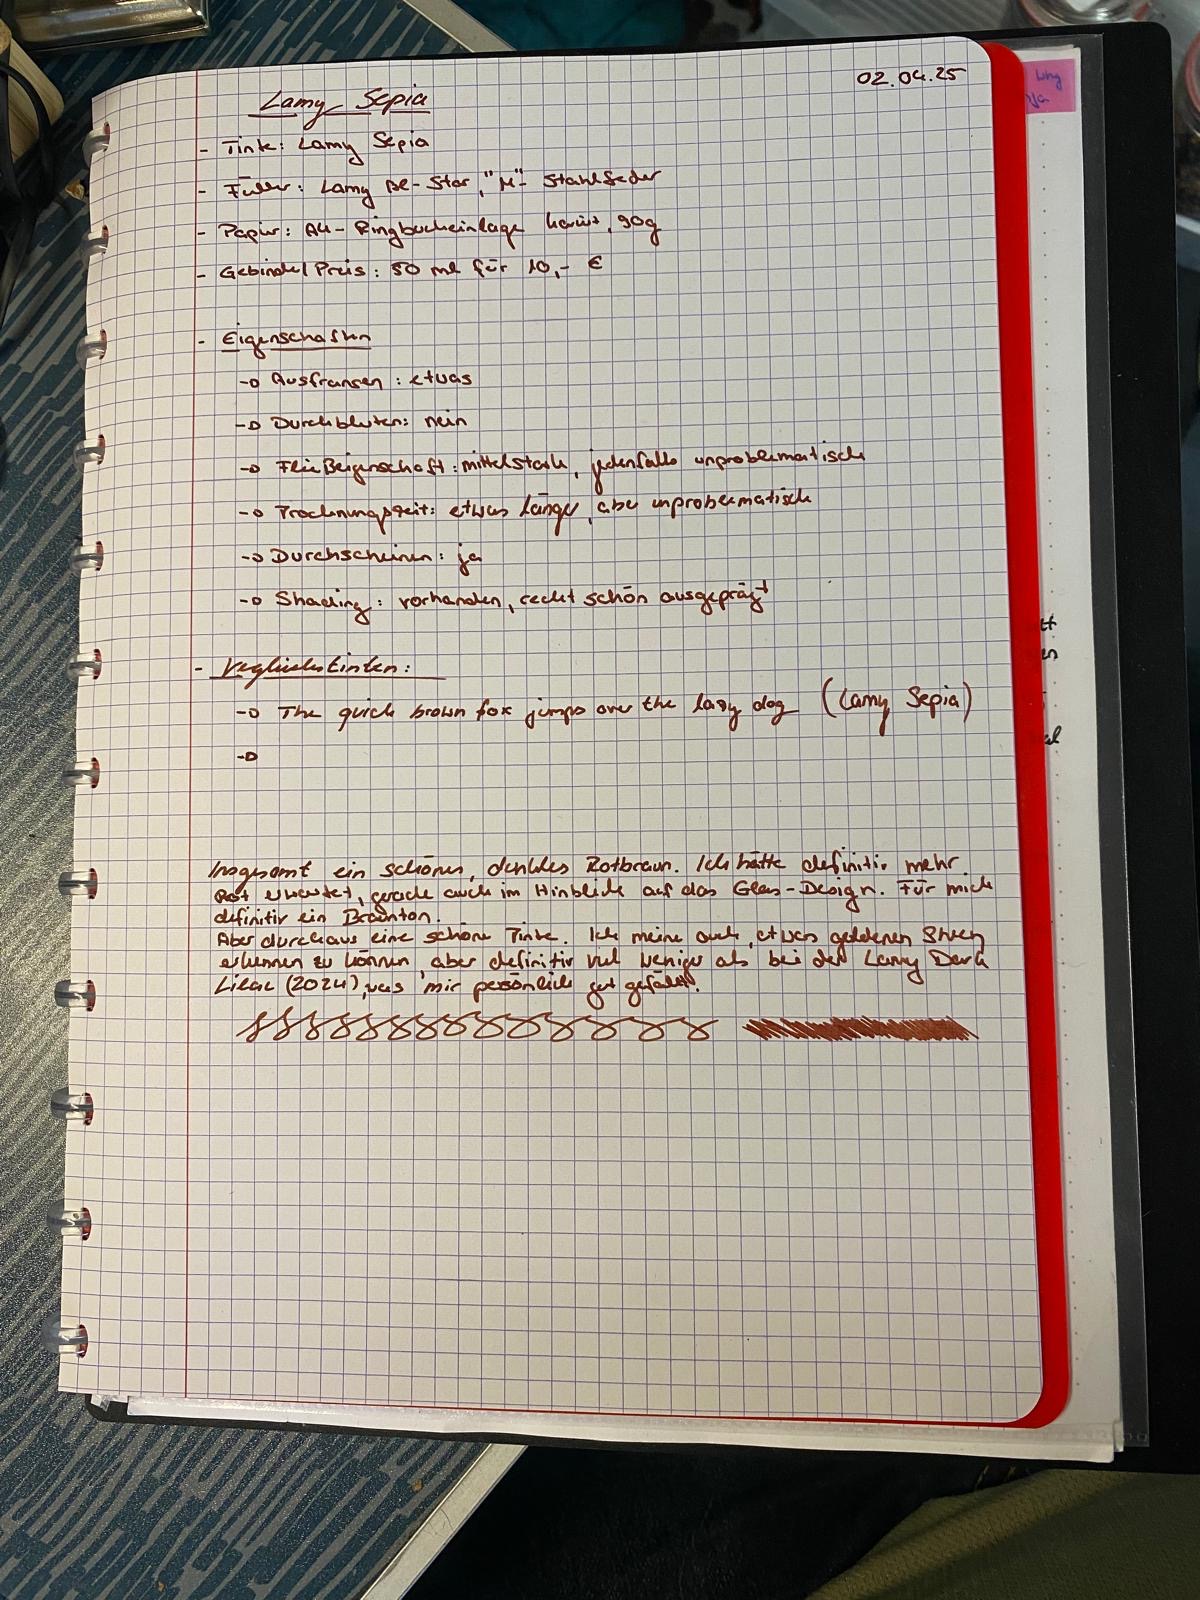 02.04.25
Lamy Sepia
- Tinte: Lamy Sepia
- Füller: Lamy Al-Star, "M"- Stahlfeder
- Papier: A4-Ringbucheinlage kariert, 90g
- Gebinde/Preis: 50 ml für 10,- €
- Eigenschaften
-> Ausfransen: etwas
-> Durchbluten: nein
-> Fließeigenschaft: mittelstark, jedenfalls unproblematisch
-> Trocknungszeit: etwas länger, aber unproblematisch
-> Durchscheinen: ja
-> Shading: vorhanden, recht schön ausgeprägt
- Vergleichstinten:
-> The quick brown fox jumps over the lazy dog (Lamy Sepia)
->
Insgesamt ein schönes, dunkles Rotbraun. Ich hätte definitiv mehr
Rot erwartet, gerade auch im Hinblick auf das Glas-Design. Für mich
definitiv ein Braunton.
Aber durchaus eine schöne Tinte. Ich meine auch, etwas goldenen Sheen
erkennen zu können, aber definitiv viel weniger als bei der Lamy Dark
Lilac (2024), was mir persönlich gut gefällt.
Why